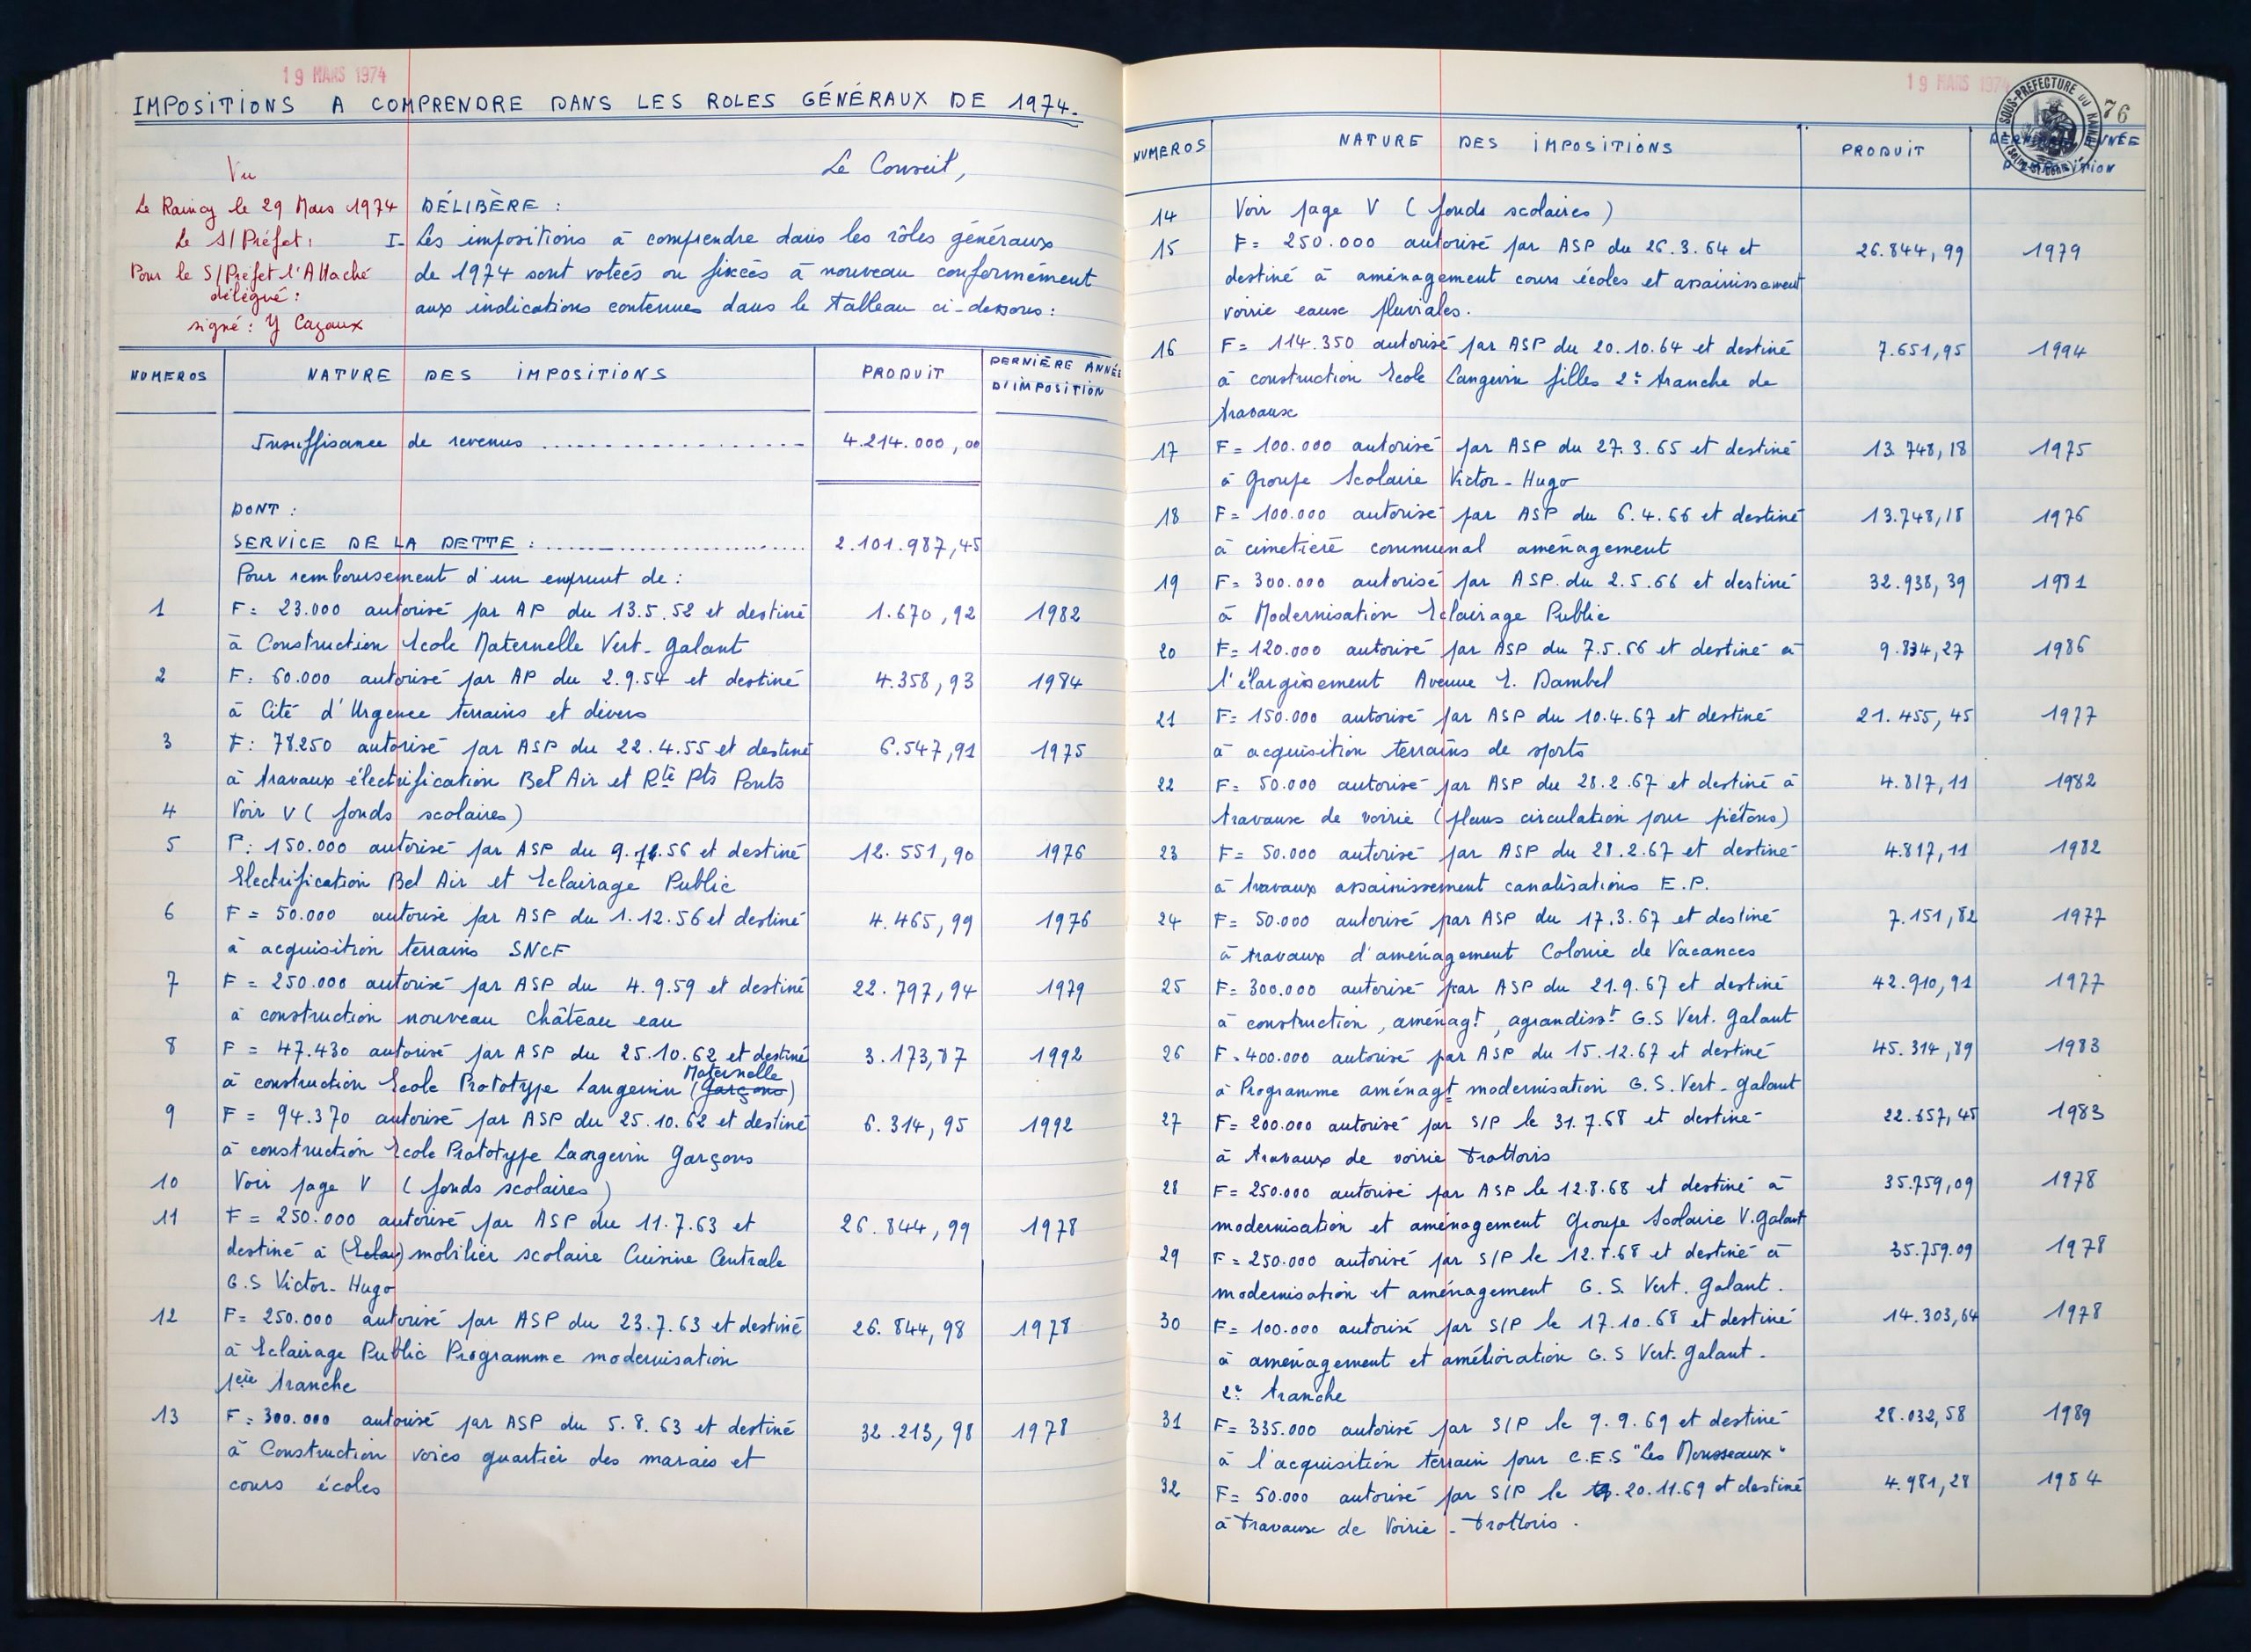 19 MARS 1974
IMPOSITIONS A COMPRENDRE DANS LES ROLES GÉNÉRAUX DE 1974.
Vu
Le Raincy le 29 Mars 1974
Le S/Préfet,
Pour le S/Préfet l'Attaché
délégué :
signé : Y Cazaux
Le Conseil,
DÉLIBÈRE :
I- Les impositions à comprendre dans les rôles généraux
de 1974 sont votées ou fixées à nouveau conformément
aux indications contenues dans le tableau ci-dessous :
NUMEROS NATURE DES IMPOSITIONS PRODUIT DERNIÈRE ANNÉE
D'IMPOSITION
Insuffisance de revenus .................... 4.214.000,00
DONT :
SERVICE DE LA DETTE : ........................ 2.101.987,45
Pour remboursement d'un emprunt de :
1 F: 23.000 autorisé par AP du 13.5.52 et destiné 1.670,92 1982
à Construction Ecole Maternelle Vert-Galant
2 F: 60.000 autorisé par AP du 2.9.54 et destiné 4.358,93 1984
à Cité d'Urgence terrains et divers
3 F: 78.250 autorisé par ASP du 22.4.55 et destiné 6.547,91 1975
à travaux électrification Bel Air et Rte Pts Ponts
4 Voir V (fonds scolaires)
5 F: 150.000 autorisé par ASP du 9. .56 et destiné 12.551,90 1976
Electrification Bel Air et Eclairage Public
6 F = 50.000 autorisé par ASP du 1.12.56 et destiné 4.465,99 1976
à acquisition terrains SNCF
7 F = 250.000 autorisé par ASP du 4.9.59 et destiné 22.797,94 1979
à construction nouveau château eau
8 F = 47.430 autorisé par ASP du 25.10.62 et destiné 3.173,87 1992
Maternelle
à construction Ecole Prototype Langevin (Garçons)
9 F = 94.370 autorisé par ASP du 25.10.62 et destiné 6.314,95 1992
à construction Ecole Prototype Laangevin Garçons
10 Voir page V (fonds scolaires)
11 F = 250.000 autorisé par ASP du 11.7.63 et 26.844,99 1978
destiné à (Eclai) mobilier scolaire Cuisine Centrale
G.S Victor-Hugo
12 F= 250.000 autorisé par ASP du 23.7.63 et destiné 26.844,98 1978
à Eclairage Public Programme modernisation
1ère tranche
13 F= 300.000 autorisé par ASP du 5.8.63 et destiné 32.213,98 1978
à Construction voies quartier des marais et
cours écoles
19 MARS 1974
SOUS-PRÉFECTURE DU RAINCY
76
NUMEROS NATURE DES IMPOSITIONS PRODUIT DERNIÈRE ANNÉE
D'IMPOSITION
14 Voir page V (fonds scolaires)
15 F= 250.000 autorisé par ASP du 26.3.64 et 26.844,99 1979
destiné à aménagement cours écoles et assainissement
voirie eaux pluviales.
16 F= 114.350 autorisé par ASP du 20.10.64 et destiné 7.651,95 1994
à construction Ecole Langevin filles 2e tranche de
travaux
17 F= 100.000 autorisé par ASP du 27.3.65 et destiné 13.748,18 1975
à Groupe Scolaire Victor-Hugo
18 F= 100.000 autorisé par ASP du 6.4.66 et destiné 13.748,18 1976
à cimetière communal aménagement
19 F= 300.000 autorisé par ASP du 2.5.66 et destiné 32.938,39 1981
à Modernisation Eclairage Public
20 F= 120.000 autorisé par ASP du 7.5.66 et destiné à 9.834,27 1986
l'élargissement Avenue E. Dambel
21 F= 150.000 autorisé par ASP du 10.4.67 et destiné 21.455,45 1977
à acquisition terrains de sports
22 F= 50.000 autorisé par ASP du 28.2.67 et destiné à 4.817,11 1982
travaux de voirie (plans circulation pour piétons)
23 F= 50.000 autorisé par ASP du 28.2.67 et destiné 4.817,11 1982
à travaux assainissement canalisations E.P.
24 F= 50.000 autorisé par ASP du 17.3.67 et destiné 7.151,82 1977
à travaux d'aménagement Colonie de Vacances
25 F= 300.000 autorisé par ASP du 21.9.67 et destiné 42.910,91 1977
à construction, aménagt, agrandisst G.S Vert.Galant
26 F= 400.000 autorisé par ASP du 15.12.67 et destiné 45.314,89 1983
à Programme aménagt modernisation G.S. Vert-Galant
27 F= 200.000 autorisé par S/P le 31.7.68 et destiné 22.657,45 1983
à travaux de voirie Trottoirs
28 F= 250.000 autorisé par ASP le 12.8.68 et destiné à 35.759,09 1978
modernisation et aménagement Groupe Scolaire V.Galant
29 F= 250.000 autorisé par S/P le 12.8.68 et destiné à 35.759.09 1978
modernisation et aménagement G.S. Vert.Galant.
30 F= 100.000 autorisé par S/P le 17.10.68 et destiné 14.303,64 1978
à aménagement et amélioration G.S Vert.Galant.
2e tranche
31 F= 335.000 autorisé par S/P le 9.9.69 et destiné 28.032,58 1989
à l'acquisition terrain pour C.E.S "Les Mousseaux"
32 F= 50.000 autorisé par S/P le 20.11.69 et destiné 4.981,28 1984
à travaux de Voirie - Trottoirs.